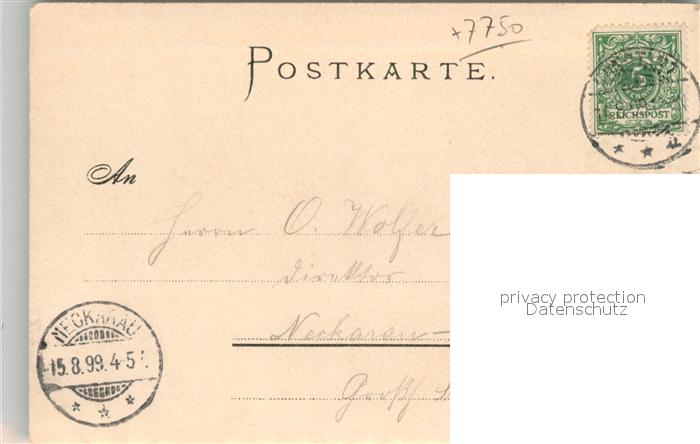 +7750
POSTKARTE.
5
REICHSPOST
An
Herrn O. Wolfer
Direktor
privacy protection
Datenschutz
Neckarau-
NECKARAU
15.8.99.4-5
Großh